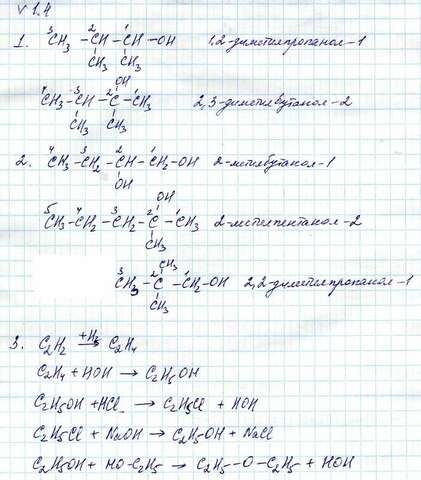 v 1.4
1. ³CH₃ – ²CH – ¹CH – OH 1,2-диметилпропанол-1
CH₃ CH₃
OH
⁴CH₃ – ³CH – ²C – ¹CH₃ 2,3-диметилбутанол-2
CH₃ CH₃
2. ⁴CH₃ – ³CH₂ – ²CH – ¹CH₂-OH 2-метилбутанол-1
OH
OH
⁵CH₃ – ⁴CH₂ – ³CH₂ – ²C – ¹CH₃ 2-метилпентанол-2
CH₃
CH₃
³CH₃ – ²C – ¹CH₂-OH 2,2-диметилпропанол-1
CH₃
3. C₂H₂ +H₂→ C₂H₄
C₂H₄ + HOH → C₂H₅OH
C₂H₅OH + HCl → C₂H₅Cl + HOH
C₂H₅Cl + NaOH → C₂H₅OH + NaCl
C₂H₅OH + HO-C₂H₅ → C₂H₅ – O – C₂H₅ + HOH